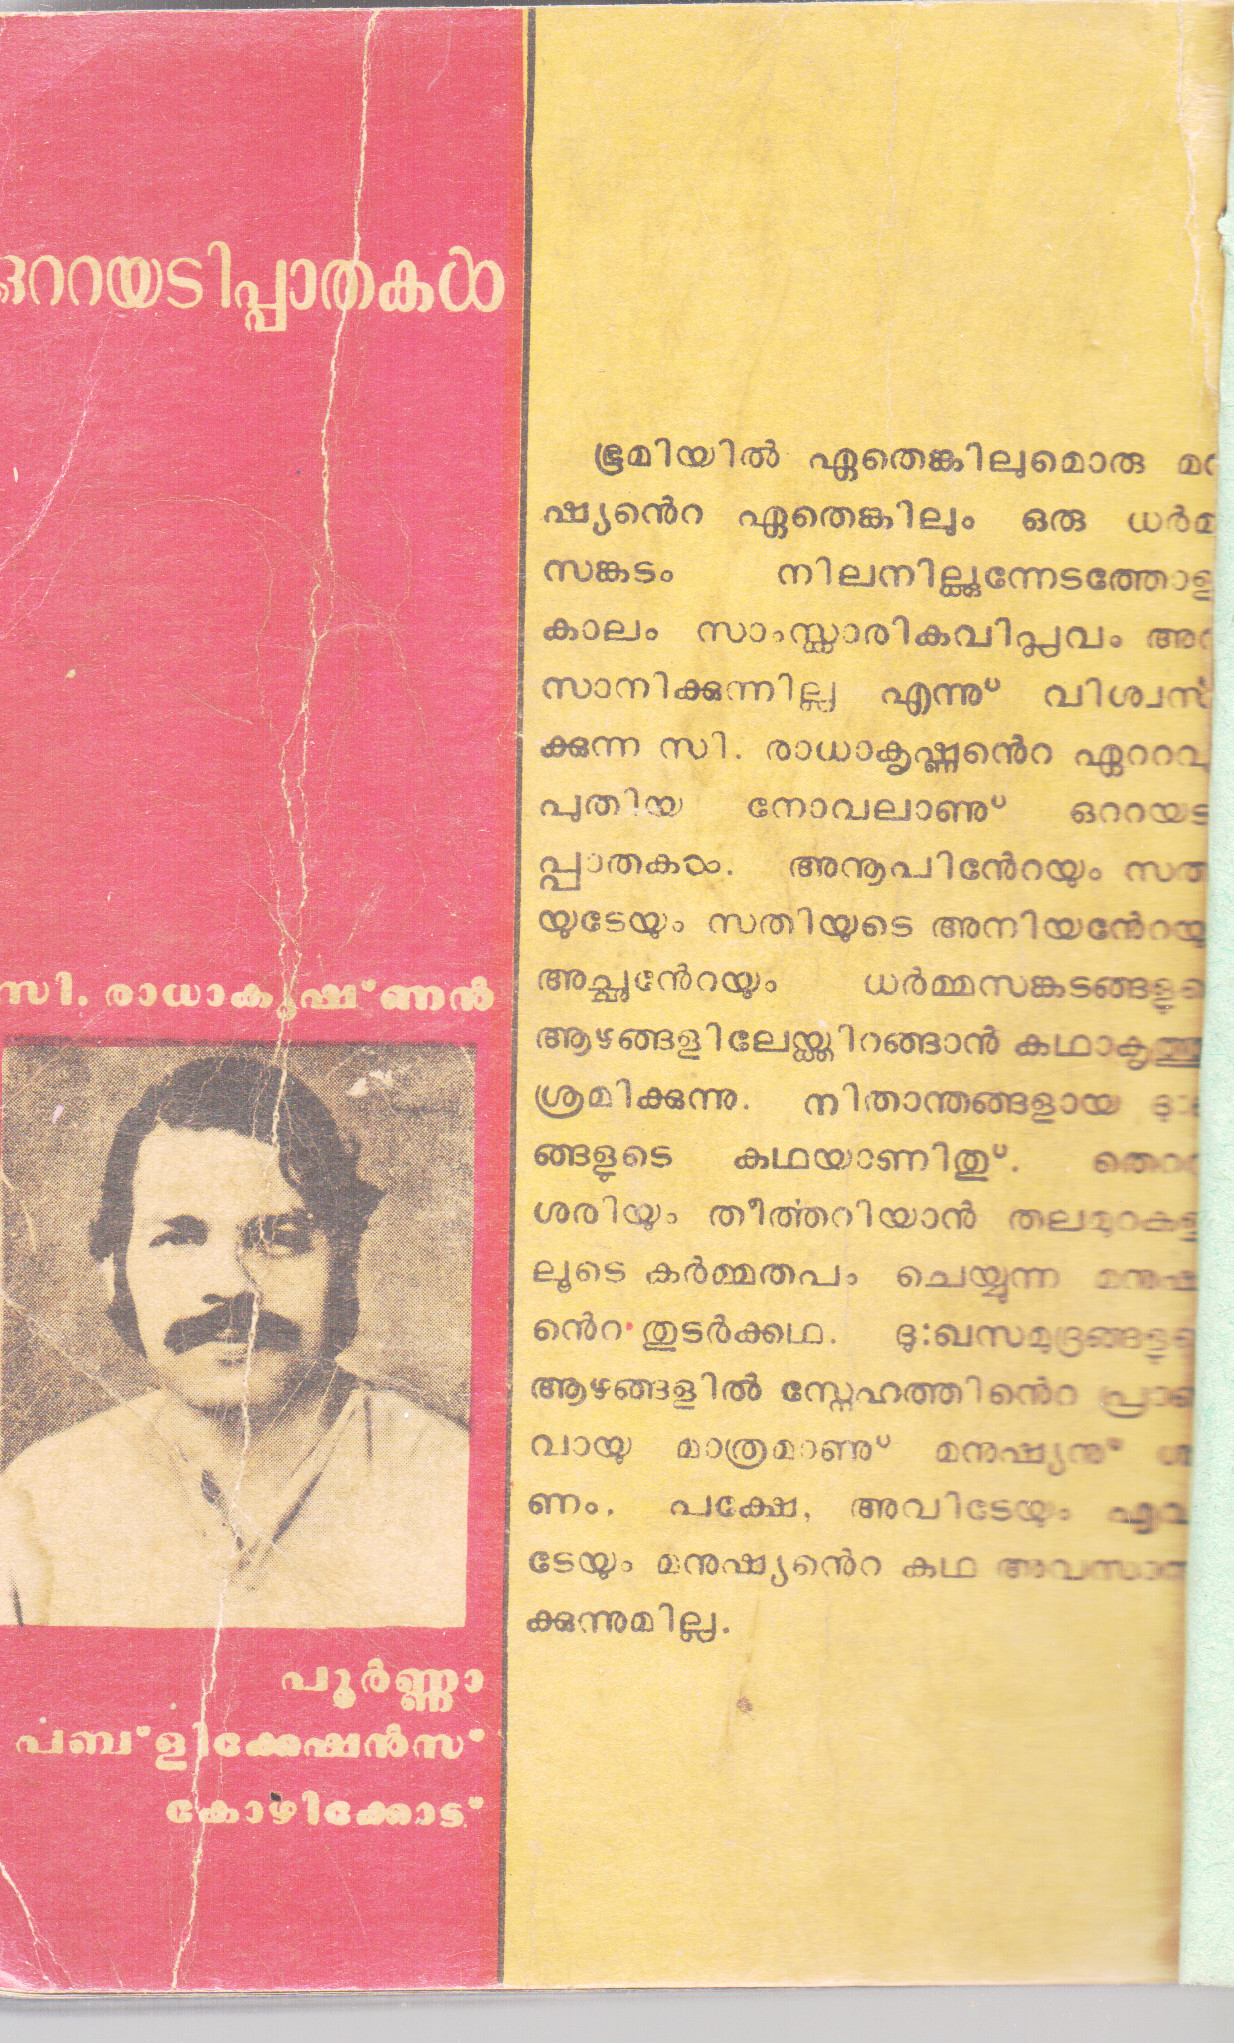 ഒററയടിപ്പാതകൾ
സി. രാധാകൃഷ്ണൻ
പൂർണ്ണാ
പബ്ളിക്കേഷൻസ്
കോഴിക്കോട്
ഭൂമിയിൽ ഏതെങ്കിലുമൊരു
ഷ്യൻെറ ഏതെങ്കിലും ഒരു ധർമ്മ
സങ്കടം നിലനില്ക്കുന്നേടത്തോള
കാലം സാംസ്ക്കാരികവിപ്ലവം
സാനിക്കുന്നില്ല എന്നു് വിശ്വസി
ക്കുന്ന സി. രാധാകൃഷ്ണൻെറ ഏററവു
പുതിയ നോവലാണു് ഒററയടി
പ്പാതകൾ. അനൂപിൻേറയും സതി
യുടേയും സതിയുടെ അനിയൻേറയു
അച്ഛൻേറയും ധർമ്മസങ്കടങ്ങളുടെ
ആഴങ്ങളിലേയ്ക്കിറങ്ങാൻ കഥാകൃത്തു
ശ്രമിക്കുന്നു. നിതാന്തങ്ങളായ
ങ്ങളുടെ കഥയാണിതു്.
ശരിയും തീർത്തറിയാൻ തലമുറകളി
ലൂടെ കർമ്മതപം ചെയ്യുന്ന മനുഷ്യ
ൻെറ തുടർക്കഥ. ദുഃഖസമുദ്രങ്ങളുടെ
ആഴങ്ങളിൽ സ്നേഹത്തിൻെറ പ്രാണ
വായു മാത്രമാണു് മനുഷ്യനു്
ണം. പക്ഷേ, അവിടേയും എവി
ടേയും മനുഷ്യൻെറ കഥ അവസാനി
ക്കുന്നുമില്ല.